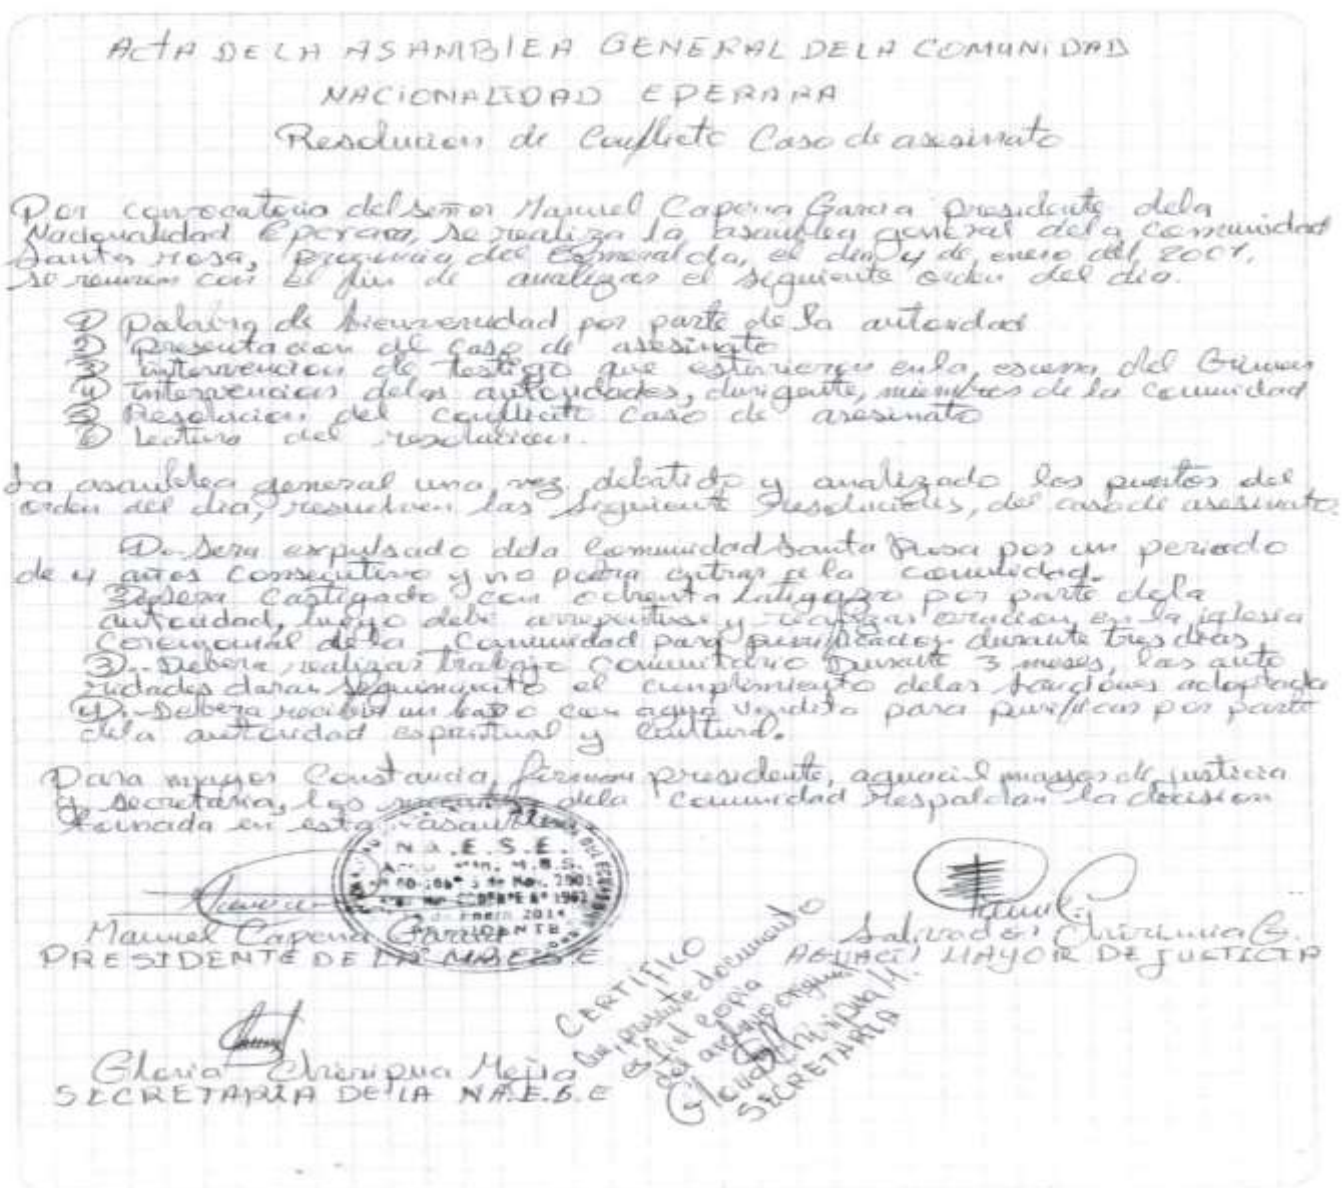 ACTA DE LA ASAMBLEA GENERAL DE LA COMUNIDAD
NACIONALIDAD EPERARA
Resolucion de Conflicto Caso de asesinato
Por convocatoria del señor Manuel Capena Garcia presidente dela
Nacionalidad Eperara, se realiza la asamblea general dela comunidad
Santa rosa, provincia del Esmeralda, el dia 4 de enero del 2007,
se reunen con el fin de analizar el siguiente orden del dia.
1) palabra de bienvenidad por parte de la autoridad
2) presentacion del caso de asesinato
3) intervencion de testigo que estuvieron enla escena del Crimen
4) intervencion delas autoridades, dirigente, miembros de la Comunidad
5) Resolucion del conflicto caso de asesinato
6) Lectura del resolucion.
La asamblea general una vez debatido y analizado los puntos del
orden del dia, resuelven las siguiente resoluciones, del caso de asesinato.
1)- Sera expulsado dela Comunidad Santa Rosa por un periodo
de 4 años consecutivo y no podra entrar a la comunidad.
2) sera castigado con ochenta latigazo por parte dela
autoridad, luego debe arrepentirse y realizar oracion en la iglesia
Ceremonial de la Comunidad para purificacion durante tres dias
3)- Debera realizar trabajo comunitario Durante 3 meses, las auto
ridades daran seguimiento el cumplimiento delas sanciones adoptada
4)- Debera recibir un baño con agua vendita para purificar por parte
dela autoridad espiritual y Cultural.
Para mayor Constancia, firman presidente, aguacil mayor de justicia
y secretaria, los miembros dela comunidad respaldan la decision
tomada en esta asamblea
N.A.E.S.E.
Enero 2014
PRESIDENTE
Manuel Capena Garcia
PRESIDENTE DE LA NAE.S.E
Salvador Chirimia G.
AGUACIL MAYOR DE JUSTICIA
Gloria Chiripua Mejia
SECRETARIA DE LA NA.E.S.E
CERTIFICO
Que, presente documento
es fiel copia
del archivo original
Gloria Chiripua M.
SECRETARIA